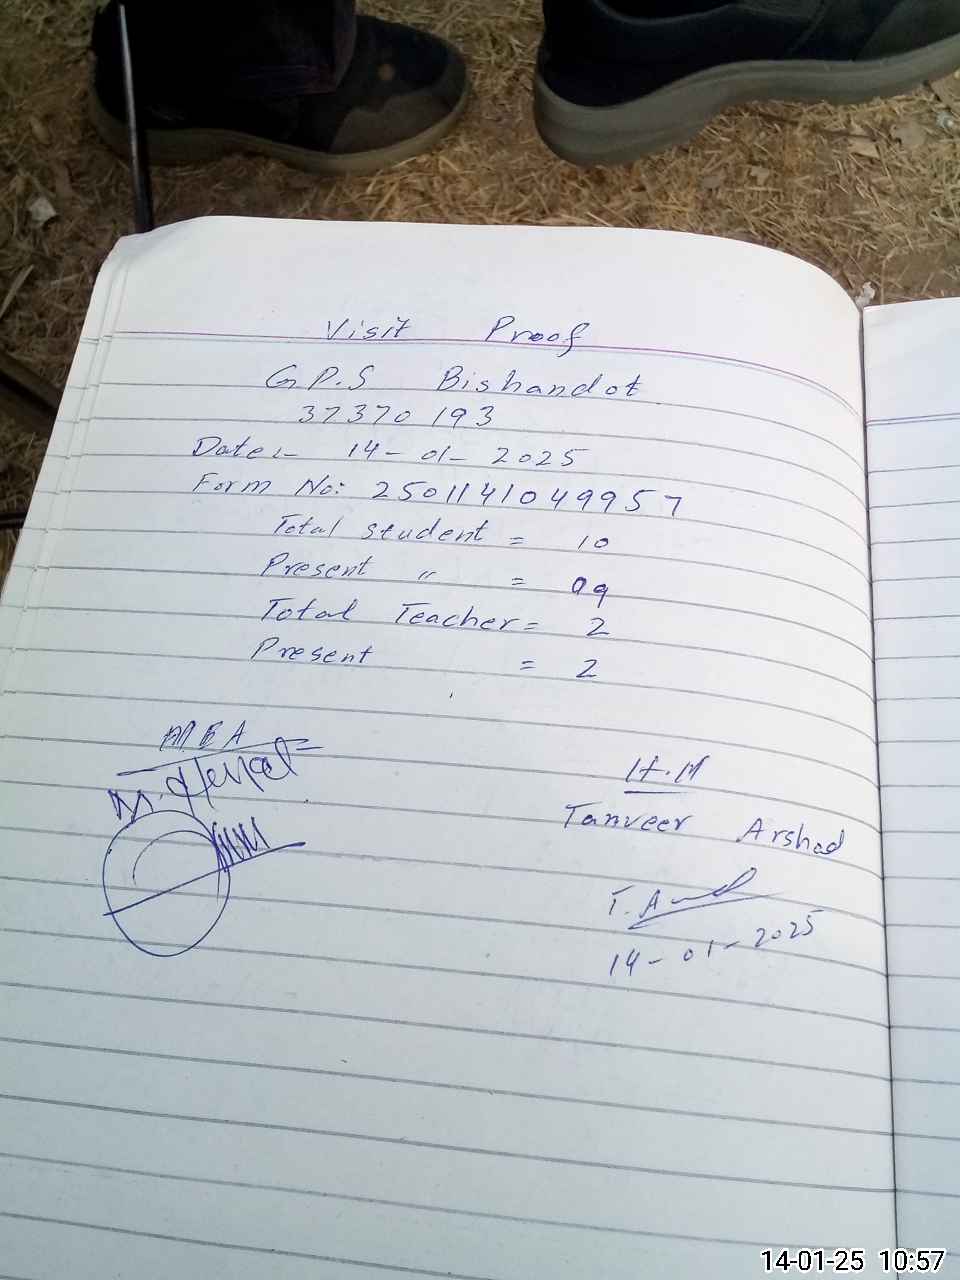 Visit Proof
G.P.S Bishandot
37370193
Date:- 14-01-2025
Form No: 2501141049957
Total student = 10
Present " = 09
Total Teacher = 2
Present = 2
MEA
H.M
Tanveer Arshad
14-01-2025
14-01-25 10:57